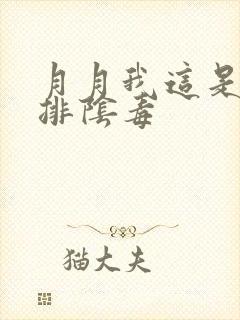 月月我這是
排陰毒
猫大夫